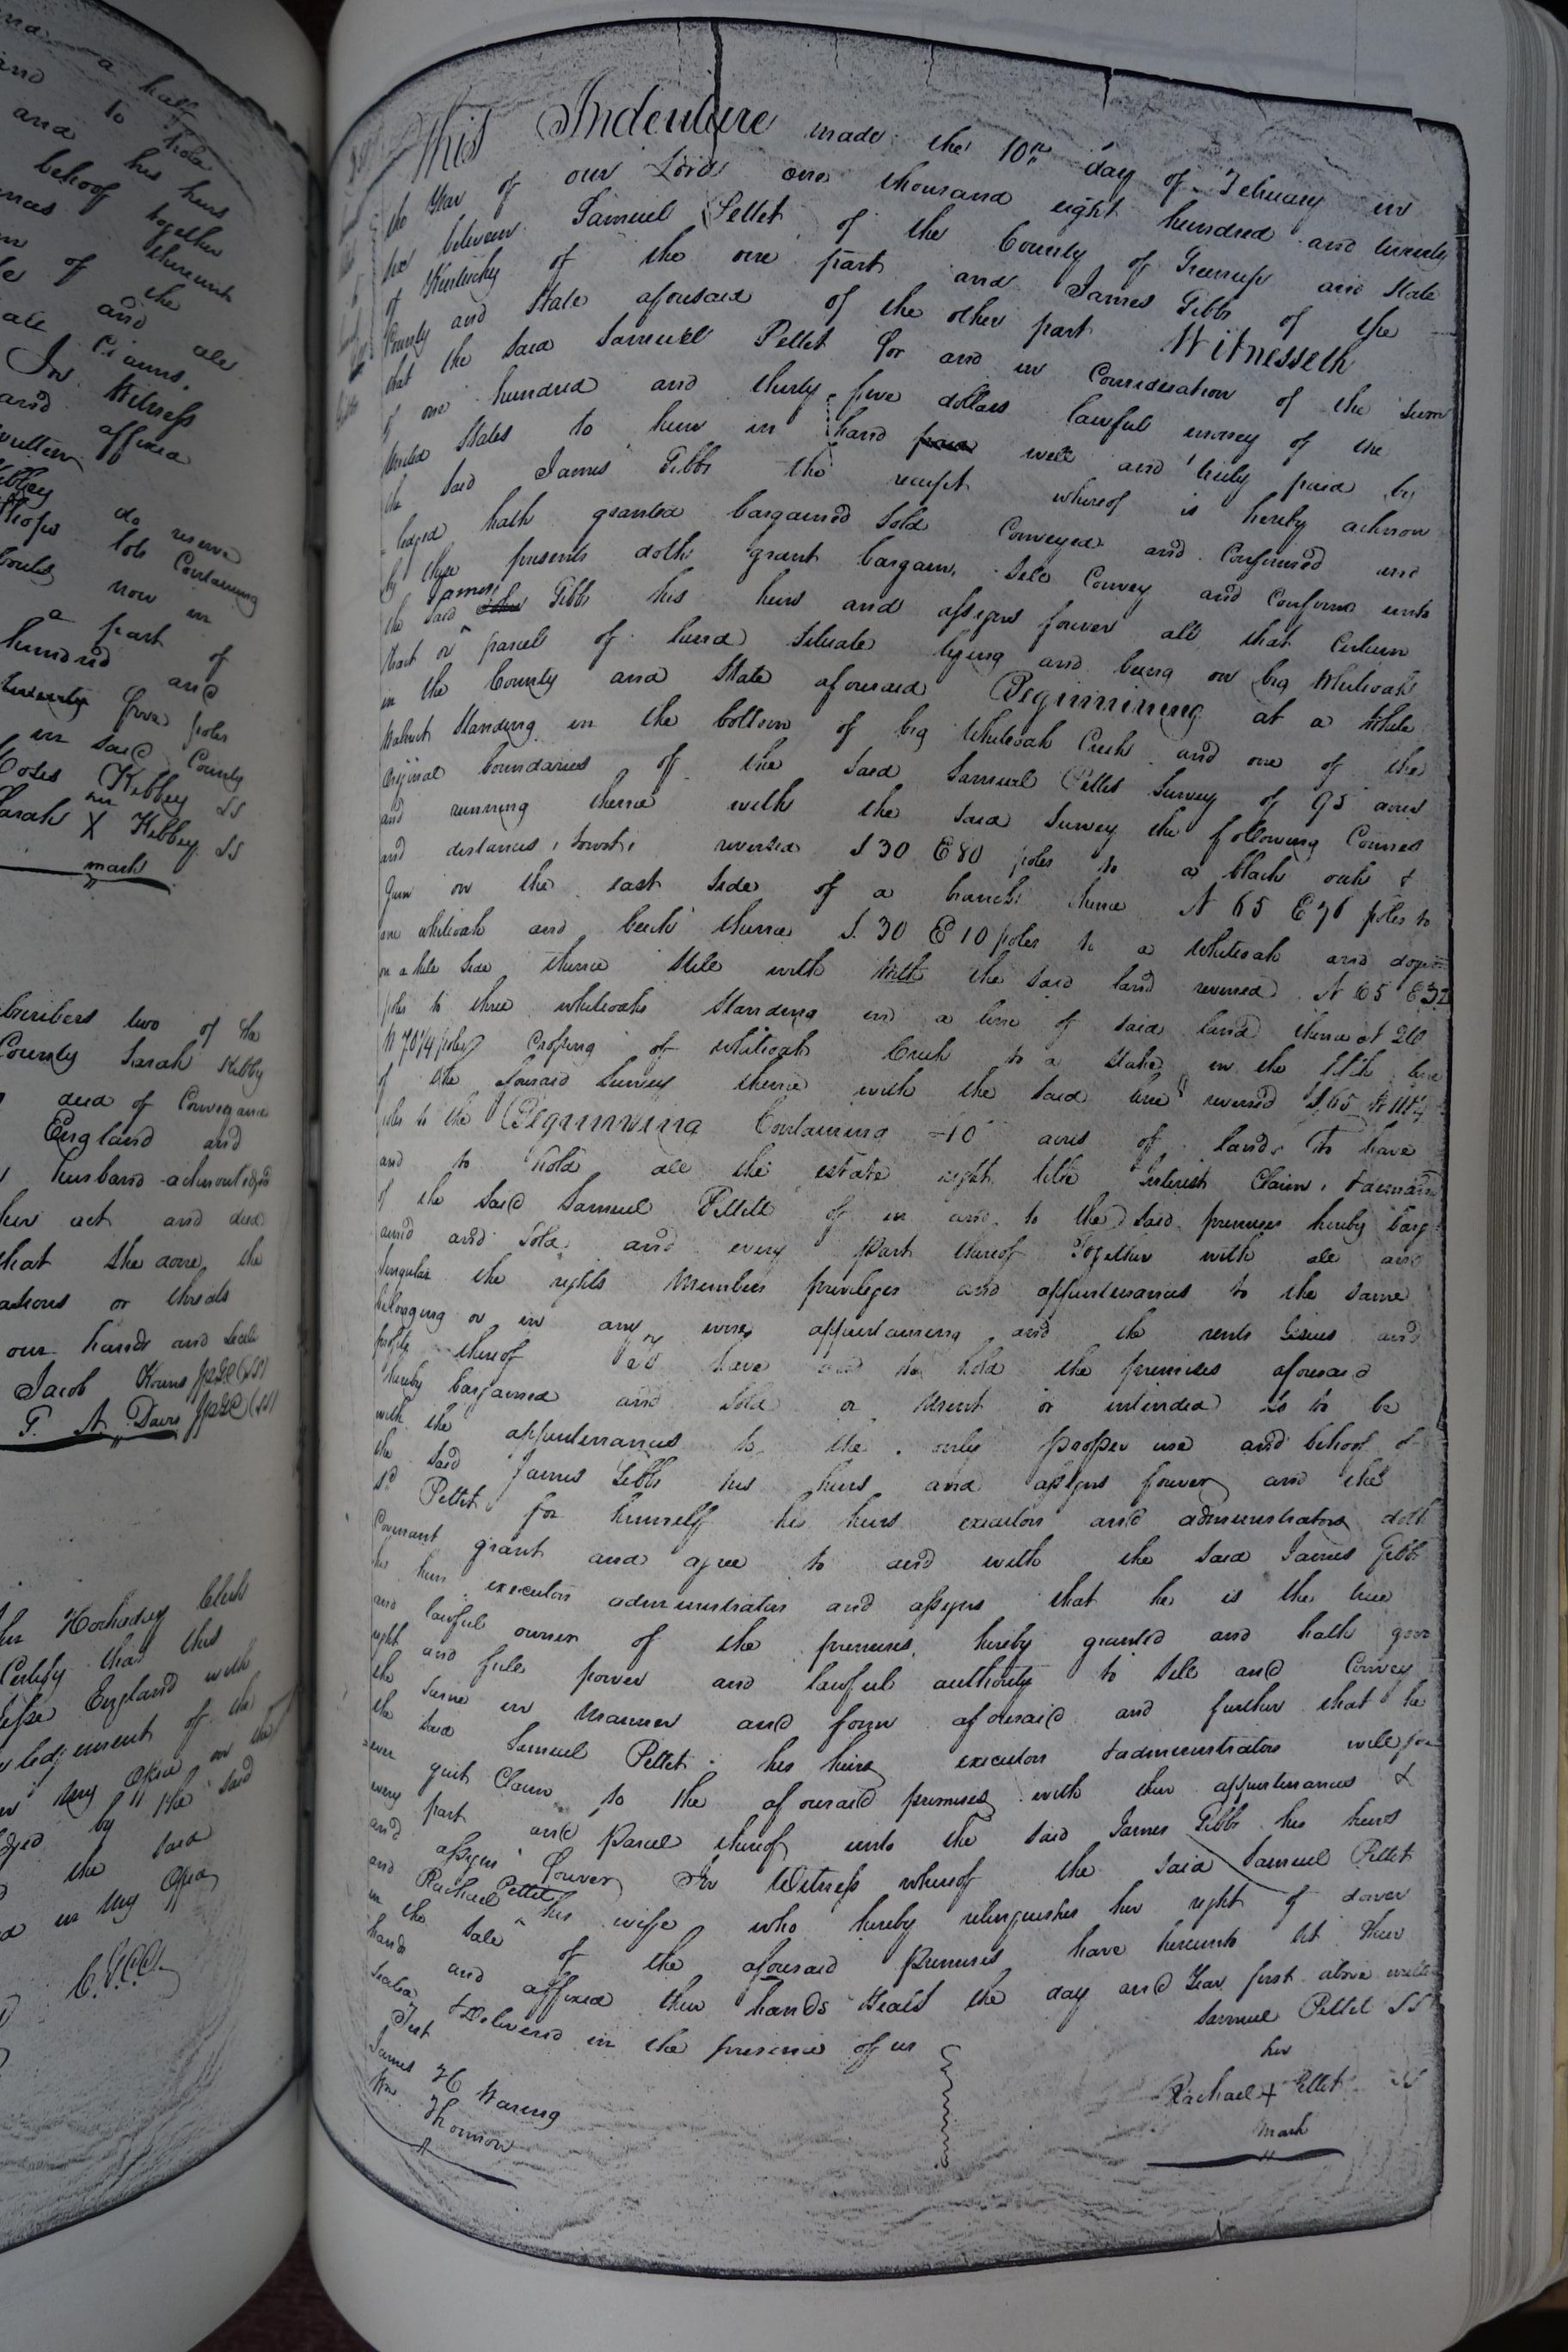 a half
and to hold
and his heirs
behoof together
thereunto
of the
and all
all Claims.
In Witness
and affixed
written
do reserve
lots Containing
now in
a part of
hundred and
twenty five poles
in said County
Moses Kibbey SS
her
Sarah X Kibbey SS
mark
subscribers two of the
County Sarah Kibby
deed of Conveyance
England and
husband acknowledged
her act and deed
that she done the
or threats
our hands and seals
Jacob Kouns JPGC (SS)
T. N. Davis JPGC (SS)
Clerk
Certify that this
England with
of the
my office on the
by the said
the said
in my office
This Indenture made the 10th day of February in
the Year of our Lord one thousand eight hundred and twenty
six between Samuel Pellet of the County of Greenup and State
of Kentucky of the one part and James Gibbs of the
County and State aforesaid of the other part Witnesseth
that the said Samuel Pellet for and in Consideration of the sum
of one hundred and thirty five dollars lawful money of the
United States to him in hand paid well and truly paid by
the said James Gibbs the receipt whereof is hereby acknow
-ledged hath granted bargained sold Conveyed and Confirmed and
by these presents doth grant bargain, sell Convey and Confirm unto
James
the said John Gibbs his heirs and assigns forever all that Certain
tract or parcel of land situate lying and being on big Whiteoak
in the County and State aforesaid Beginning at a White
Walnut standing in the bottom of big Whiteoak Creek and one of the
Original boundaries of the said Samuel Pellet Survey of 95 acres
and running thence with the said Survey the following Courses
and distances, towit, reversed S 30 E 80 poles to a black oak &
Gum on the east side of a branch thence N 65 E 76 poles to
one whiteoak and beech thence S. 30 E 10 poles to a Whiteoak and dog
on a hill side thence still with with the said land reversed N 65 E 32
poles to three whiteoaks standing in a line of said land thence N 20
W 70 1/4 poles Crossing of whiteoak Creek to a stake in the fifth line
of the aforesaid Survey thence with the said line reversed S 65 W 111 1/4
poles to the Beginning Containing 40 acres of land, To have
and to hold all the estate right title Interest Claim, & demand
of the said Samuel Pellett of in and to the said premises hereby barg
ained and Sold and every part thereof Together with all and
Singular the rights members privileges and appurtenances to the same
belonging or in any wise appertaining and the rents Issues and
profits thereof To have and to hold the premises aforesaid
hereby bargained and Sold or meant or intended so to be
with the appurtenances to the only propper use and behoof of
the said James Gibbs his heirs and assigns forever and the
sd Pellet for himself his heirs executors and administrators doth
Covenant grant and agree to and with the said James Gibbs
his heirs executors administrators and assigns that he is the true
and lawful owner of the premises hereby granted and hath good
right and full power and lawful authority to sell and Convey
the same in manner and form aforesaid and further that he
the said Samuel Pellet his heirs executors & administrators will for
-ever quit Claim to the aforesaid premises with their appurtenances &
every part and parcel thereof unto the said James Gibbs his heirs
and assigns forever In Witness whereof the said Samuel Pellet
and Rachael Pellet his wife who hereby relinquishes her right of dower
in the sale of the aforesaid premises have hereunto set their
hands and affixed their hands & seals the day and Year first above written
Sealed & Delivered in the presence of us
Test
James H Waring
Wm. Thomson
Samuel Pellet SS
her
Rachael + Pellet SS
mark